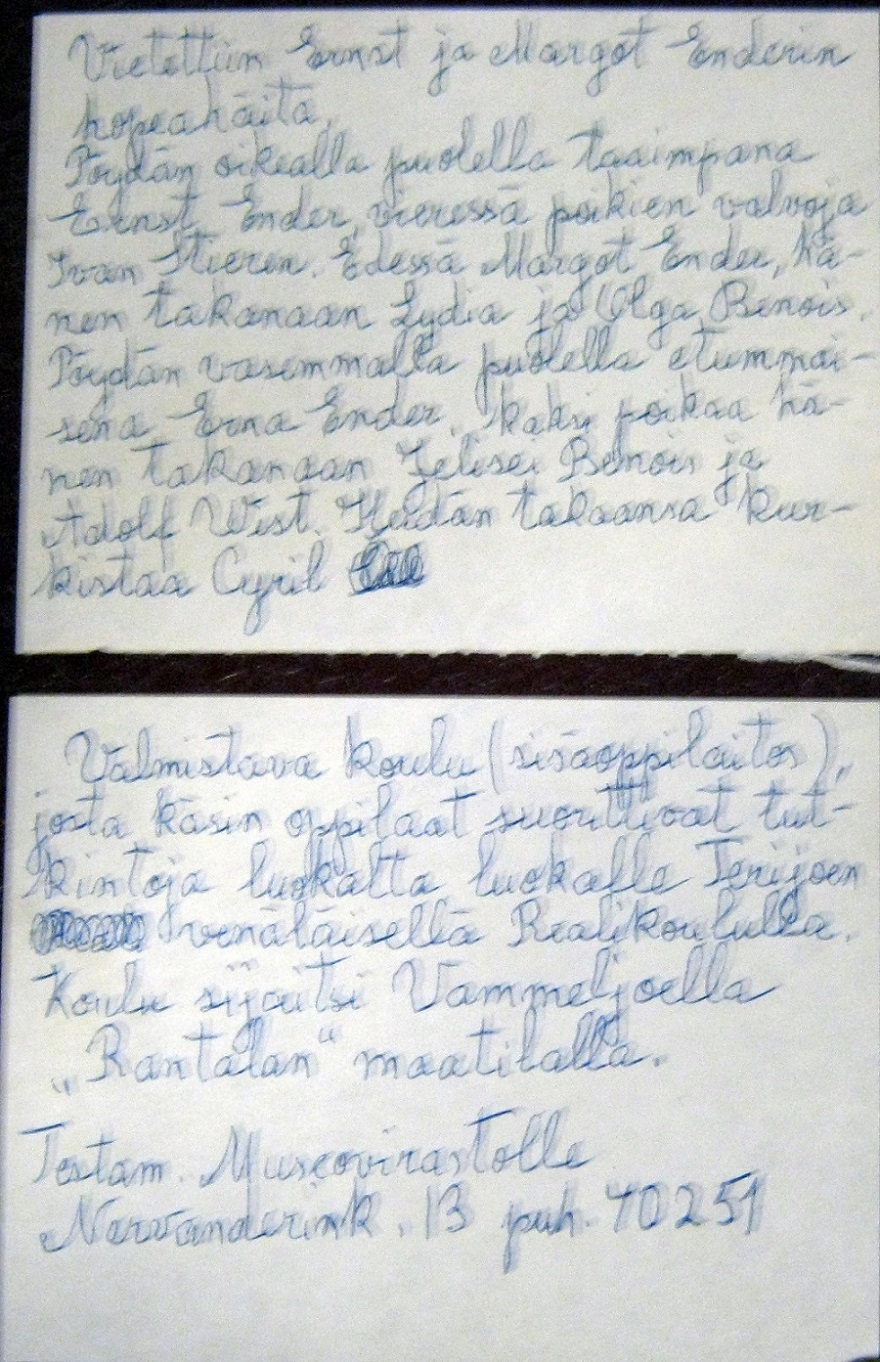 Vietettiin Ernst ja Margot Enderin
hopeahäitä.
Pöydän oikealla puolella taaimpana
Ernst Ender, vieressä poikien valvoja
Ivan Stieren. Edessä Margot Ender, hä-
nen takanaan Lydia ja Olga Benois.
Pöydän vasemmalla puolella etummai-
sena Erna Ender. kaksi poikaa hä-
nen takanaan Jelisei Benois ja
Adolf Wist. Heidän takaansa kur-
kistaa Cyril
Valmistava koulu (sisäoppilaitos),
josta käsin oppilaat suorittivat tut-
kintoja luokalta luokalle Terijoen
venäläisellä Realikoululla.
Koulu sijaitsi Vammeljoella
„Rantalan“ maatilalla.
Testam. Museovirastolle
Nervanderink. 13 puh. 40251